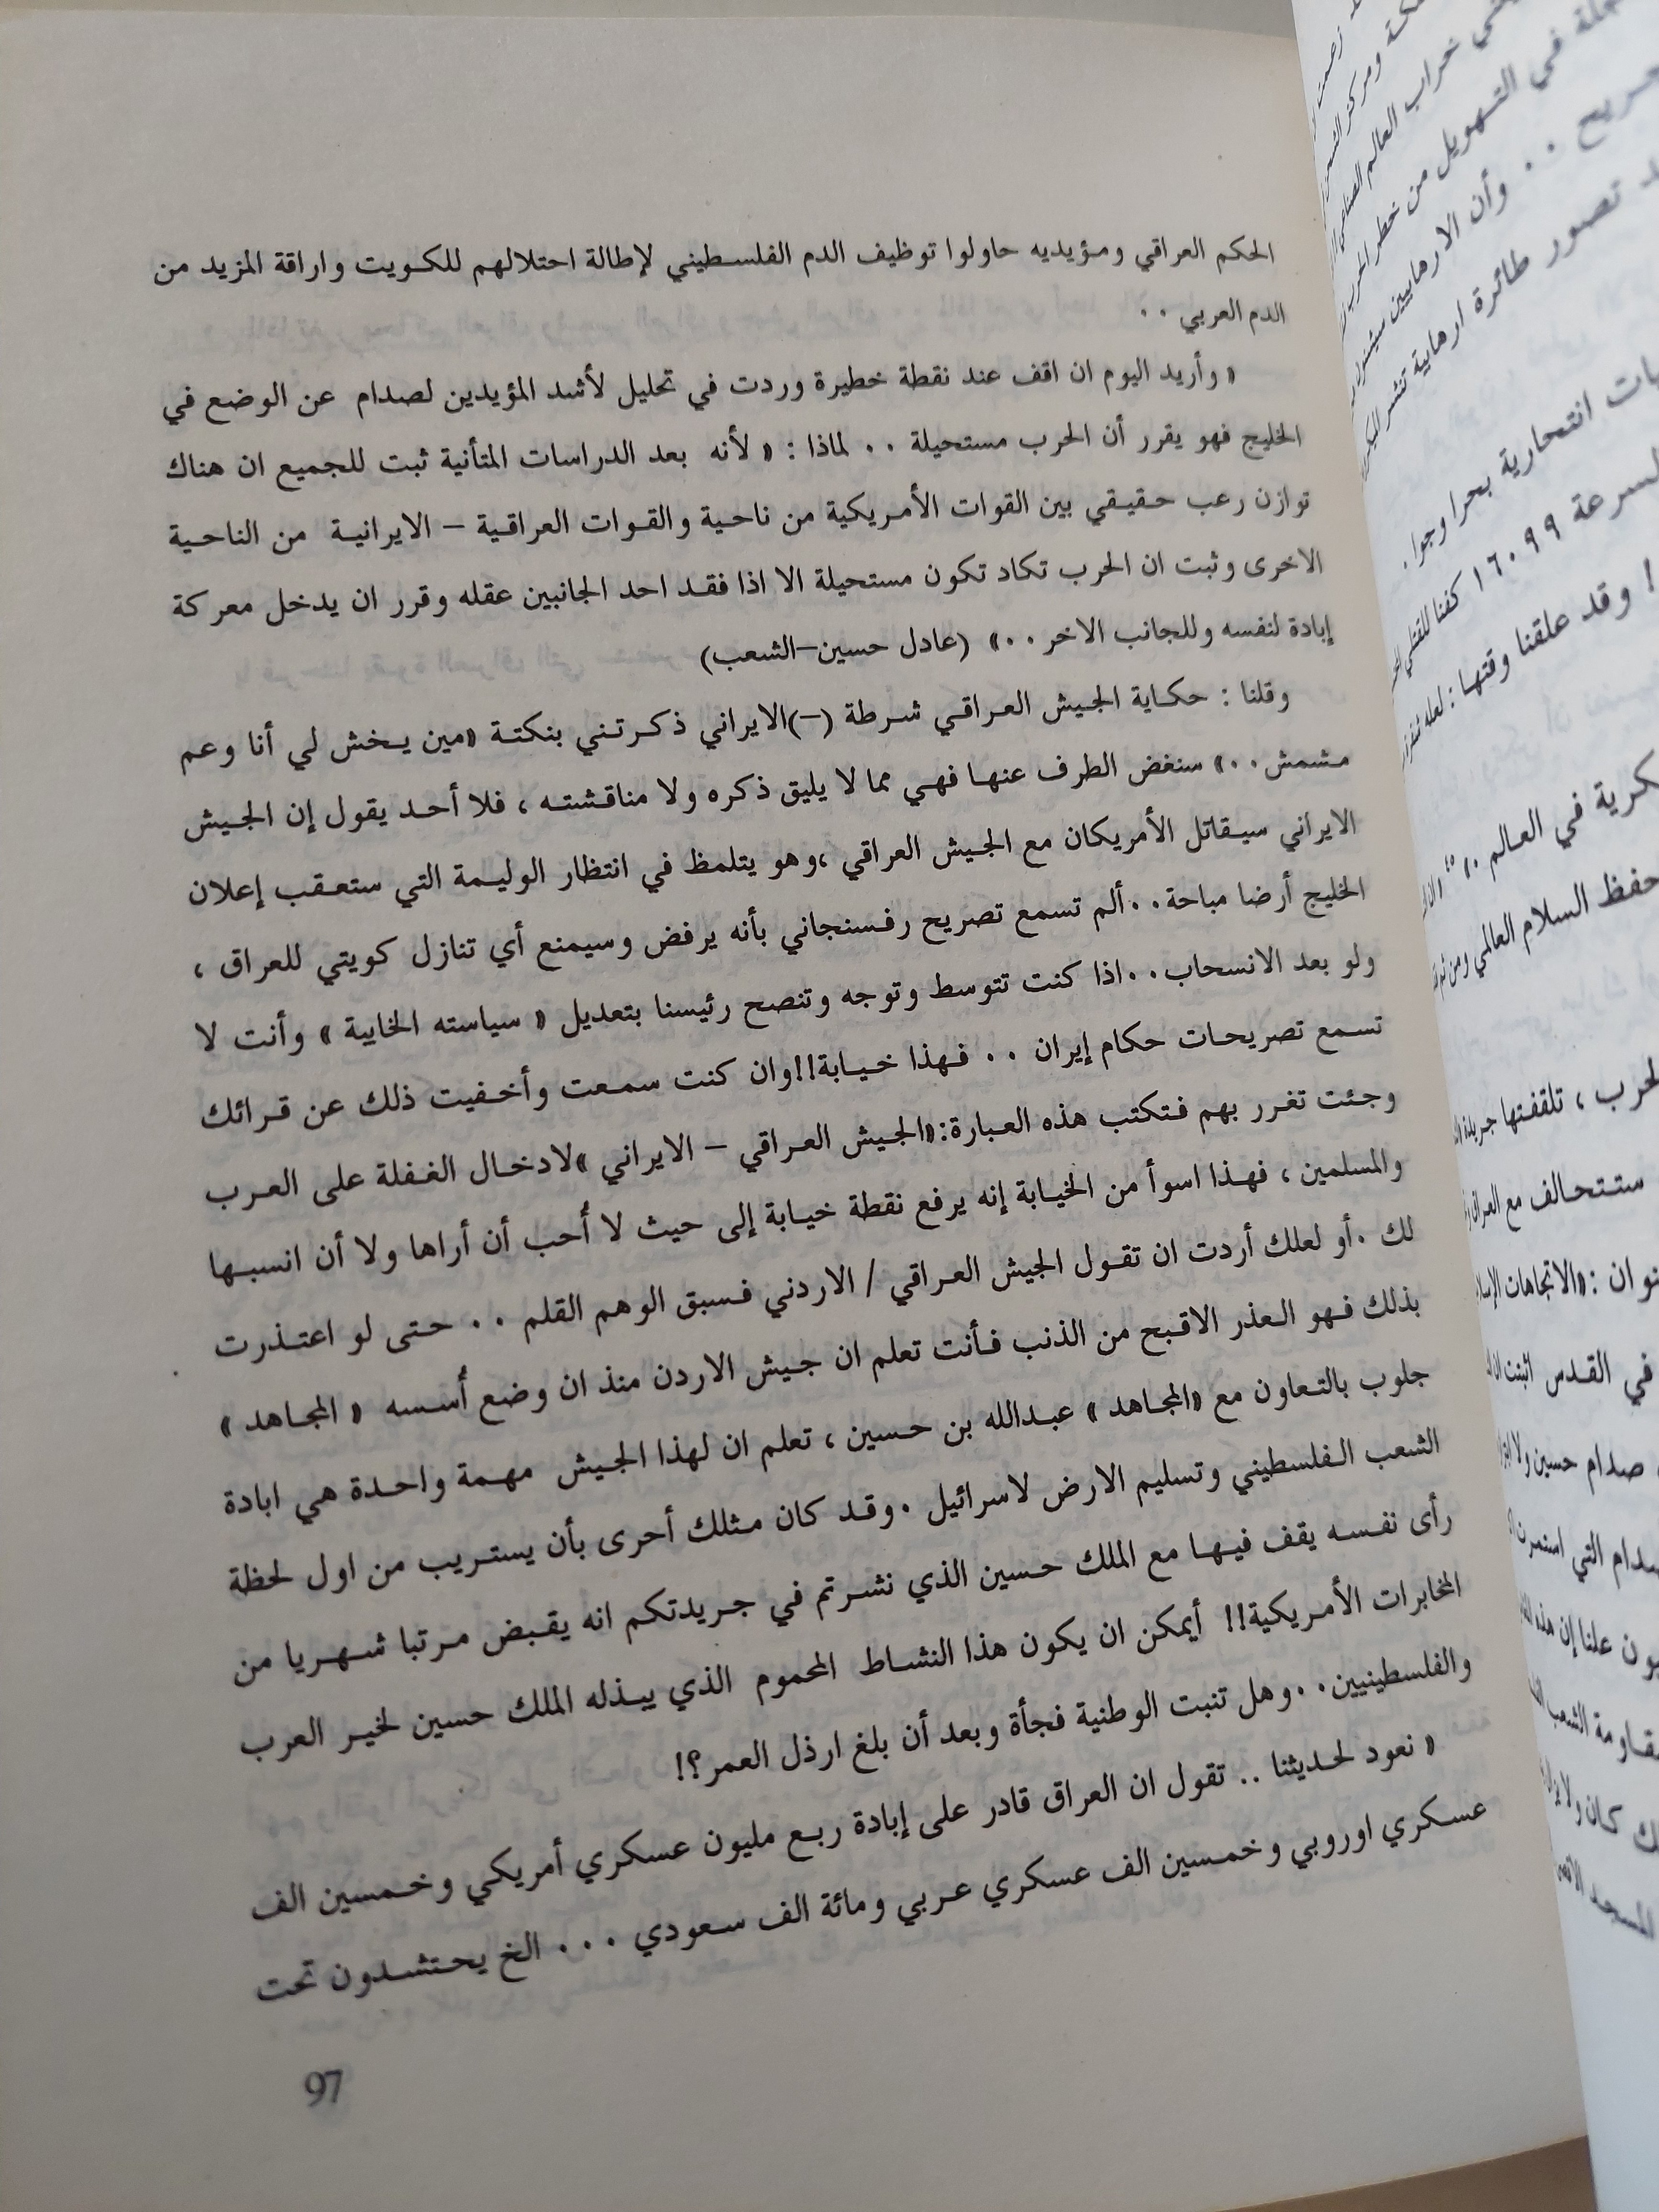 الحكم العراقي ومؤيديه حاولوا توظيف الدم الفلسطيني لإطالة احتلالهم للكويت واراقة المزيد من
الدم العربي . .
« وأريد اليوم ان اقف عند نقطة خطيرة وردت في تحليل لأشد المؤيدين لصدام عن الوضع في
الخليج فهو يقرر أن الحرب مستحيلة . . لماذا : « لأنه بعد الدراسات المتأنية ثبت للجميع ان هناك
توازن رعب حقيقي بين القوات الأمريكية من ناحية والقوات العراقية – الايرانية من الناحية
الاخرى وثبت ان الحرب تكاد تكون مستحيلة الا اذا فقد احد الجانبين عقله وقرر ان يدخل معركة
إبادة لنفسه وللجانب الاخر . .» (عادل حسين–الشعب)
وقلنا : حكاية الجيش العراقي شرطة (–)الايراني ذكرتني بنكتة «مين يخش لي أنا وعم
مشمش . .» سنغض الطرف عنها فهي مما لا يليق ذكره ولا مناقشته ، فلا أحد يقول إن الجيش
الايراني سيقاتل الأمريكان مع الجيش العراقي ،وهو يتلمظ في انتظار الوليمة التي ستعقب إعلان
الخليج أرضا مباحة. .ألم تسمع تصريح رفسنجاني بأنه يرفض وسيمنع أي تنازل كويتي للعراق ،
ولو بعد الانسحاب. .اذا كنت تتوسط وتوجه وتنصح رئيسنا بتعديل « سياسته الخايبة » وأنت لا
تسمع تصريحات حكام إيران . . فهذا خيابة!!وان كنت سمعت وأخفيت ذلك عن قرائك
وجئت تغرر بهم فتكتب هذه العبارة:«الجيش العراقي – الايراني »لادخال الغفلة على العرب
والمسلمين ، فهذا اسوأ من الخيابة إنه يرفع نقطة خيابة إلى حيث لا أُحب أن أراها ولا أن انسبها
لك .أو لعلك أردت ان تقول الجيش العراقي / الاردني فسبق الوهم القلم . . حتى لو اعتذرت
بذلك فهو العذر الاقبح من الذنب فأنت تعلم ان جيش الاردن منذ ان وضع أُسسه « المجاهد »
جلوب بالتعاون مع «المجاهد » عبدالله بن حسين ، تعلم ان لهذا الجيش مهمة واحدة هي ابادة
الشعب الفلسطيني وتسليم الارض لاسرائيل .وقد كان مثلك أحرى بأن يستريب من اول لحظة
رأى نفسه يقف فيها مع الملك حسين الذي نشرتم في جريدتكم انه يقبض مرتبا شهريا من
المخابرات الأمريكية!! أيمكن ان يكون هذا النشاط المحموم الذي يبذله الملك حسين لخير العرب
والفلسطينيين. .وهل تنبت الوطنية فجأة وبعد أن بلغ ارذل العمر؟!
« نعود لحديثنا .. تقول ان العراق قادر على إبادة ربع مليون عسكري أمريكي وخمسين الف
عسكري اوروبي وخمسين الف عسكري عربي ومائة الف سعودي . . . الخ يحتشدون تحت
97
خراب العالم
في التهويل من خطر الحرب
وأن الارهابيين
تصور طائرة ارهابية تنشر
انتحارية بحرا وجوا.
١٦٠٩٩ كفنا للقتلى
! وقد علقنا وقتها : لعله
في العالم
حفظ السلام العالمي ومن
، تلقفتها جريدة
ستتحالف مع العراق
:«الاتجاهات
في القدس اثبتت ان
صدام حسين ولا
التي استمرت
علنا إن هذه
الشعب
كان ولا
المسجد